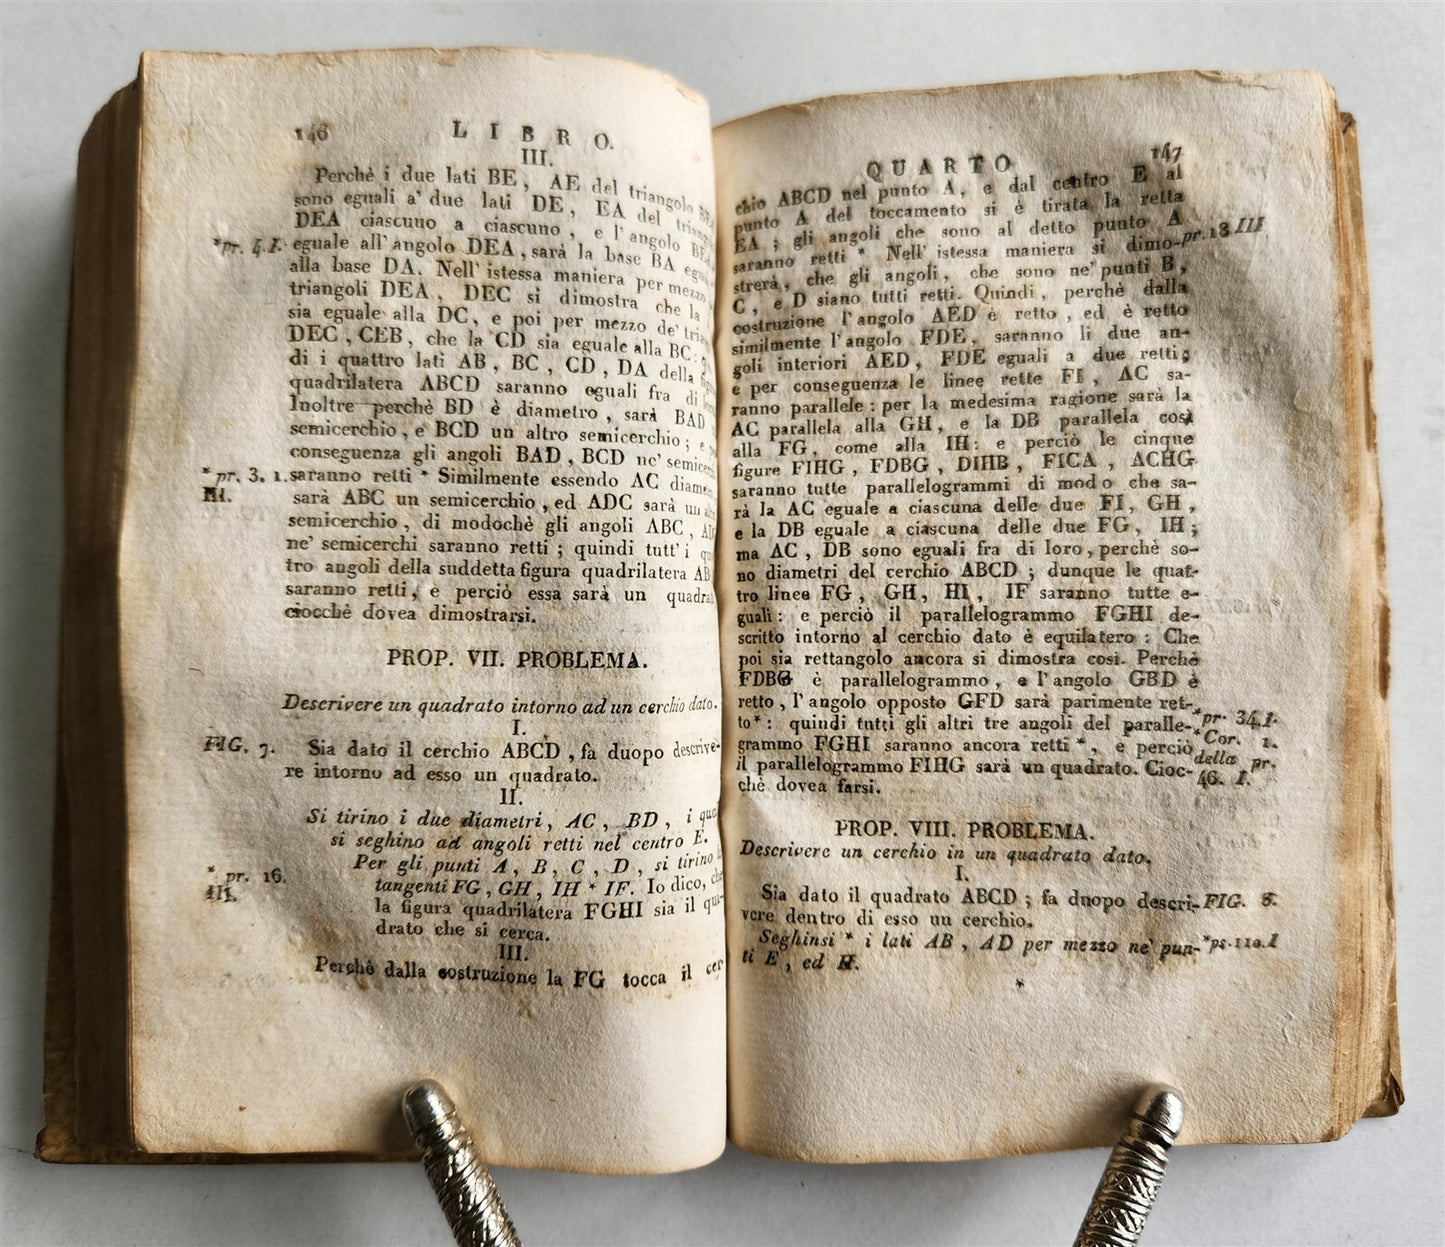 146 LIBRO.
III.
Perchè i due lati BE, AE del triangolo
sono eguali a' due lati DE, EA del
DEA ciascuno a ciascuno, e l'angolo
*pr. 4. I. eguale all'angolo DEA, sarà la base BA
alla base DA. Nell'istessa maniera per mezzo
triangoli DEA, DEC si dimostra che la
sia eguale alla DC, e poi per mezzo de'
DEC, CEB, che la CD sia eguale alla BC:
di i quattro lati AB, BC, CD, DA della
quadrilatera ABCD saranno eguali fra di
Inoltre perchè BD è diametro, sarà BAD
semicerchio, e BCD un altro semicerchio;
conseguenza gli angoli BAD, BCD ne'
* pr. 3. 1. saranno retti * Similmente essendo AC
III. sarà ABC un semicerchio, ed ADC sarà un
semicerchio, di modochè gli angoli ABC,
ne' semicerchi saranno retti; quindi tutt'i
tro angoli della suddetta figura quadrilatera
saranno retti, e perciò essa sarà un
ciocchè dovea dimostrarsi.
PROP. VII. PROBLEMA.
Descrivere un quadrato intorno ad un cerchio dato.
I.
FIG. 7. Sia dato il cerchio ABCD, fa duopo descrive-
re intorno ad esso un quadrato.
II.
Si tirino i due diametri, AC, BD, i
si seghino ad angoli retti nel centro E.
Per gli punti A, B, C, D, si tirino
* pr. 16. tangenti FG, GH, IH * IF. Io dico,
III. la figura quadrilatera FGHI sia il qua-
drato che si cerca.
III.
Perchè dalla costruzione la FG tocca il cer-
QUARTO 147
chio ABCD nel punto A, e dal centro E al
punto A del toccamento si è tirata la retta
EA; gli angoli che sono al detto punto A
saranno retti * Nell'istessa maniera si dimo- pr. 18 III
strerà, che gli angoli, che sono ne' punti B,
C, e D siano tutti retti. Quindi, perchè dalla
costruzione l'angolo AED è retto, ed è retto
similmente l'angolo FDE, saranno li due an-
goli interiori AED, FDE eguali a due retti;
e per conseguenza le linee rette FI, AC sa-
ranno parallele: per la medesima ragione sarà la
AC parallela alla GH, e la DB parallela così
alla FG, come alla IH: e perciò le cinque
figure FIHG, FDBG, DIHB, FICA, ACHG
saranno tutte parallelogrammi di modo che sa-
rà la AC eguale a ciascuna delle due FI, GH,
e la DB eguale a ciascuna delle due FG, IH;
ma AC, DB sono eguali fra di loro, perchè so-
no diametri del cerchio ABCD; dunque le quat-
tro linee FG, GH, HI, IF saranno tutte e-
guali: e perciò il parallelogrammo FGHI de-
scritto intorno al cerchio dato è equilatero: Che
poi sia rettangolo ancora si dimostra così. Perchè
FDBG è parallelogrammo, e l'angolo GBD è
retto, l'angolo opposto GFD sarà parimente ret-
to*: quindi tutti gli altri tre angoli del paralle- * pr. 34. I.
grammo FGHI saranno ancora retti *, e perciò * Cor. 1.
il parallelogrammo FIHG sarà un quadrato. Cioc- della pr.
chè dovea farsi. 46. I.
PROP. VIII. PROBLEMA.
Descrivere un cerchio in un quadrato dato.
I.
Sia dato il quadrato ABCD; fa duopo descri- FIG. 8.
vere dentro di esso un cerchio.
Seghinsi * i lati AB, AD per mezzo ne' pun- *
ti E, ed H.
*